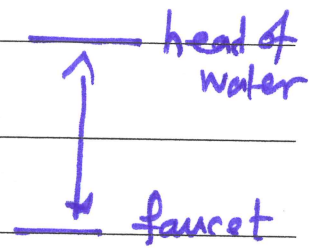 head of
water
faucet